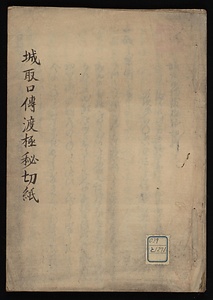 城取口傳渡極秘切紙